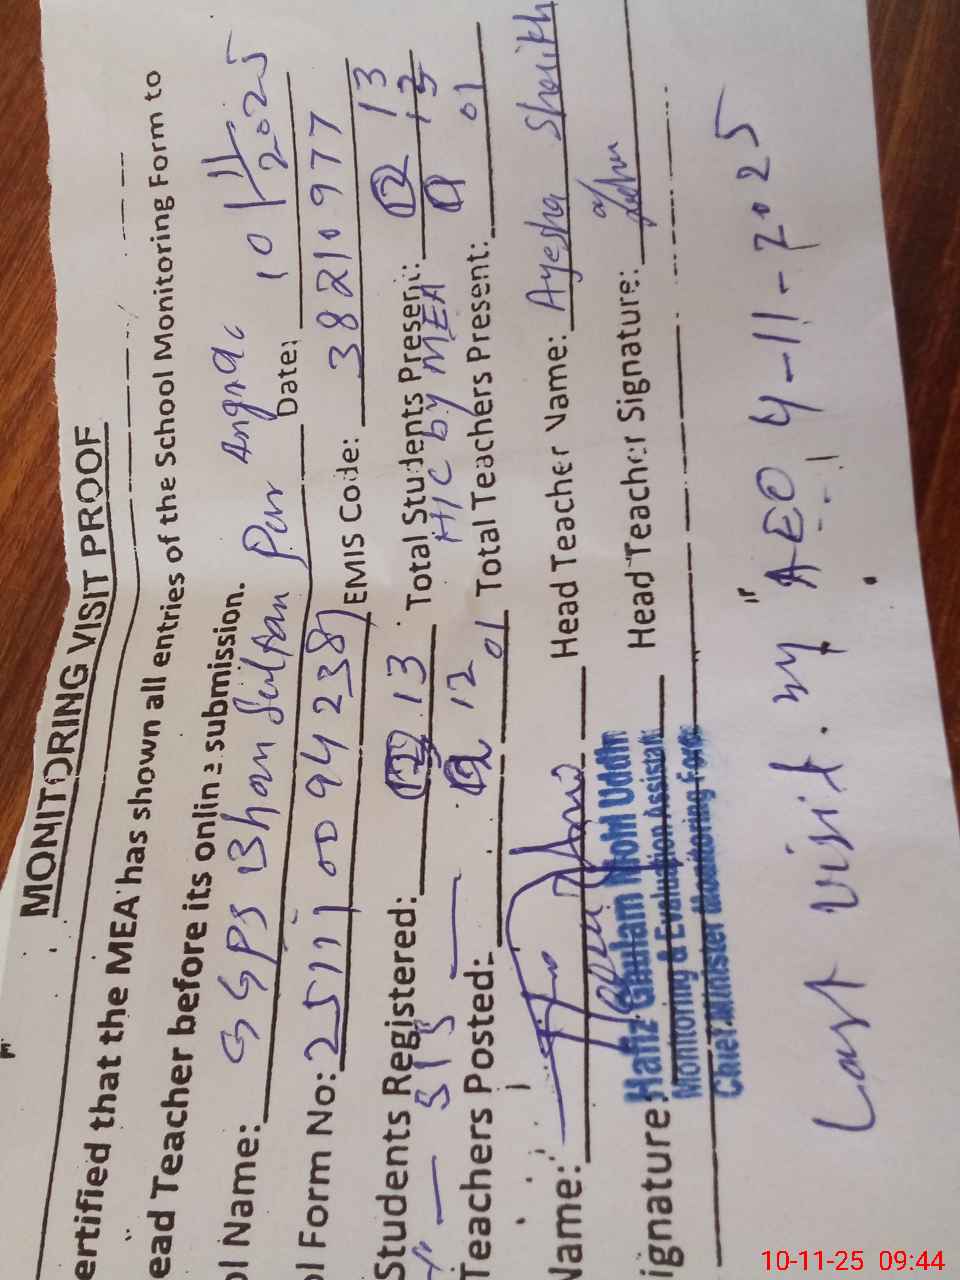 MONITORING VISIT PROOF
ertified that the MEA has shown all entries of the School Monitoring Form to
ead Teacher before its online submission.
ol Name: GGPS Bhan Sultan Pur Date: 10/11/2025
ol Form No: EMIS Code: 38210977
Students Registered: 12 13 Total Students Present: 12 13
SIS 12 H/C by MEA
Teachers Posted: 01 Total Teachers Present: 01
Name: Head Teacher Name: Ayesha Sheikh
ignature: Head Teacher Signature:
Hafiz Ghulam Mohi Uddin
Monitoring & Evaluation Assistant
Chief Minister Monitoring Force
Last visit. by AEO 4-11-2025
10-11-25 09:44